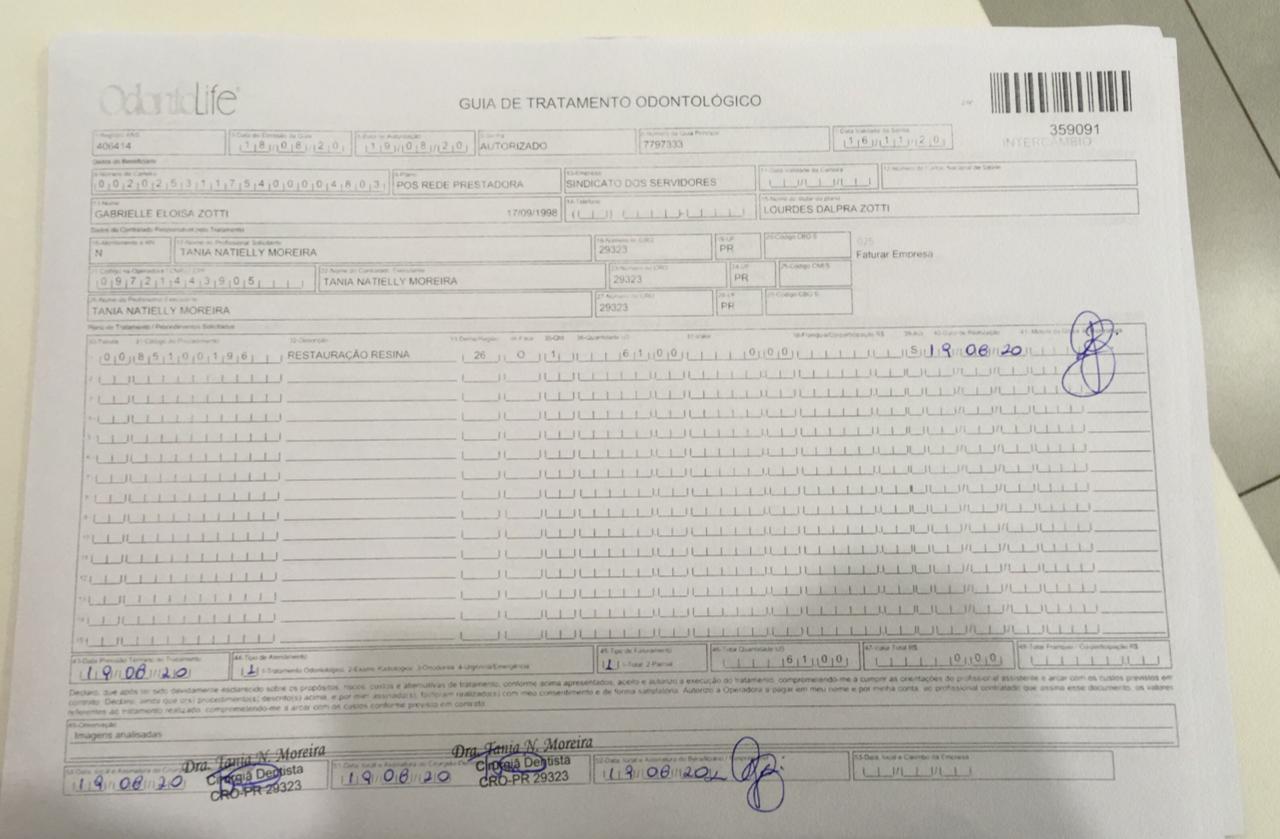 OdontoLife
GUIA DE TRATAMENTO ODONTOLÓGICO
359091
INTERCÂMBIO
1-Registro ANS
406414
18/08/20
19/08/20
AUTORIZADO
7797333
16/11/20
Dados do Beneficiário
00202531175400004803
POS REDE PRESTADORA
SINDICATO DOS SERVIDORES
GABRIELLE ELOISA ZOTTI 17/09/1998
LOURDES DALPRA ZOTTI
Dados do Contratado Responsável pelo Tratamento
N
TANIA NATIELLY MOREIRA
29323
PR
025
Faturar Empresa
09721443905
TANIA NATIELLY MOREIRA
29323
PR
TANIA NATIELLY MOREIRA
29323
PR
Plano de Tratamento / Procedimentos Solicitados
00 85100196 RESTAURAÇÃO RESINA 26 O 1 61 00 0 00 S 19 08 20
43-Data Previsão Término do Tratamento
19 08 20
44-Tipo de Atendimento
1 1-Tratamento Odontológico, 2-Exame Radiológico, 3-Ortodontia, 4-Urgência/Emergência
45-Tipo de Faturamento
1 1-Total 2-Parcial
46-Total Quantidade US
61 00
47-Valor Total R$
0 00
Declaro, que após ter sido devidamente esclarecido sobre os propósitos, riscos, custos e alternativas de tratamento, conforme acima apresentados, aceito e autorizo a execução do tratamento, comprometendo-me a cumprir as orientações do profissional assistente e arcar com os custos previstos em
contrato. Declaro, ainda que o(s) procedimento(s) descrito(s) acima, e por mim assinado(s), foi/foram realizado(s) com meu consentimento e de forma satisfatória. Autorizo a Operadora a pagar em meu nome e por minha conta, ao profissional contratado que assina esse documento, os valores
referentes ao tratamento realizado, comprometendo-me a arcar com os custos conforme previsto em contrato.
49-Observação
Imagens analisadas
19 08 20
Dra. Tania N. Moreira
Cirurgiã Dentista
CRO-PR 29323
19 08 20
Dra. Tania N. Moreira
Cirurgiã Dentista
CRO-PR 29323
19 08 20
53-Data, local e Carimbo da Empresa